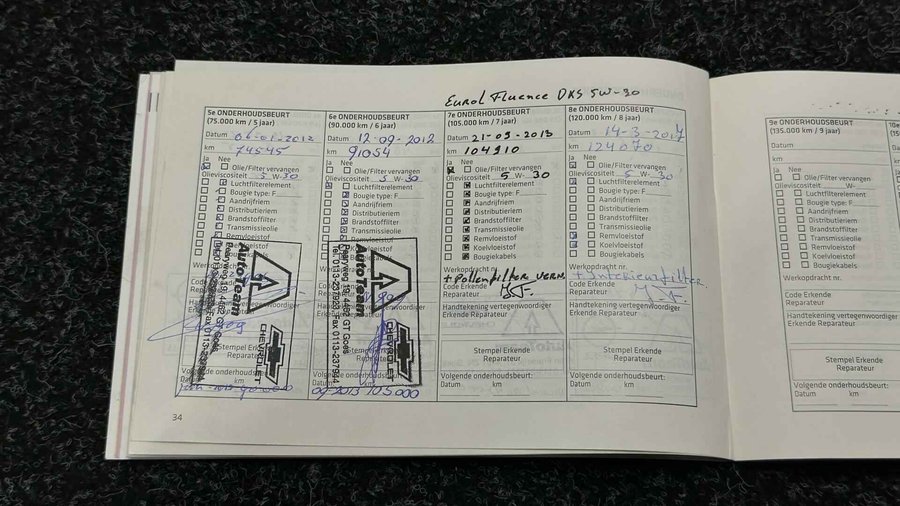 Eurol Fluence DXS 5W-30
5e ONDERHOUDSBEURT
(75.000 km / 5 jaar)
Datum 06-01-2012
km 74545
Ja Nee
Olie/Filter vervangen
Olieviscositeit 5 W-30
Luchtfilterelement
Bougie type: F
Aandrijfriem
Distributieriem
Brandstoffilter
Transmissieolie
Remvloeistof
Koelvloeistof
AutoTeam
CHEVROLET
Stempel Erkende
Reparateur
Volgende onderhoudsbeurt:
Datum km
6e ONDERHOUDSBEURT
(90.000 km / 6 jaar)
Datum 12-09-2012
km 91054
Ja Nee
Olie/Filter vervangen
Olieviscositeit 5 W-30
Luchtfilterelement
Bougie type: F
Aandrijfriem
Distributieriem
Brandstoffilter
Transmissieolie
Remvloeistof
Koelvloeistof
AutoTeam
CHEVROLET
09-2013 105000
7e ONDERHOUDSBEURT
(105.000 km / 7 jaar)
Datum 21-09-2013
km 104910
Ja Nee
Olie/Filter vervangen
Olieviscositeit 5 W-30
Luchtfilterelement
Bougie type: F
Aandrijfriem
Distributieriem
Brandstoffilter
Transmissieolie
Remvloeistof
Koelvloeistof
Bougiekabels
Werkopdracht nr.
+ Pollenfilter VERN
Code Erkende
Reparateur
Handtekening vertegenwoordiger
Erkende Reparateur
Stempel Erkende
Reparateur
Volgende onderhoudsbeurt:
Datum km
8e ONDERHOUDSBEURT
(120.000 km / 8 jaar)
Datum 14-3-2017
km 124070
Ja Nee
Olie/Filter vervangen
Olieviscositeit 5 W-30
Luchtfilterelement
Bougie type: F
Aandrijfriem
Distributieriem
Brandstoffilter
Transmissieolie
Remvloeistof
Koelvloeistof
Bougiekabels
Werkopdracht nr.
+ Interieurfilter.
Code Erkende
Reparateur
Handtekening vertegenwoordiger
Erkende Reparateur
Stempel Erkende
Reparateur
Volgende onderhoudsbeurt:
Datum km
34
9e ONDERHOUDSBEURT
(135.000 km / 9 jaar)
Datum
km
Ja Nee
Olie/Filter vervangen
Olieviscositeit W-
Luchtfilterelement
Bougie type: F
Aandrijfriem
Distributieriem
Brandstoffilter
Transmissieolie
Remvloeistof
Koelvloeistof
Bougiekabels
Werkopdracht nr.
Code Erkende
Reparateur
Handtekening vertegenwoordiger
Erkende Reparateur
Stempel Erkende
Reparateur
Volgende onderhoudsbeurt:
Datum km